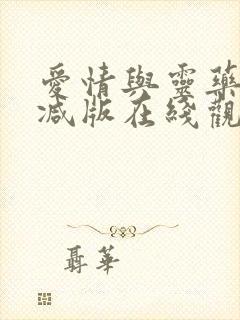 愛情與靈藥
減版在綫觀
聶華